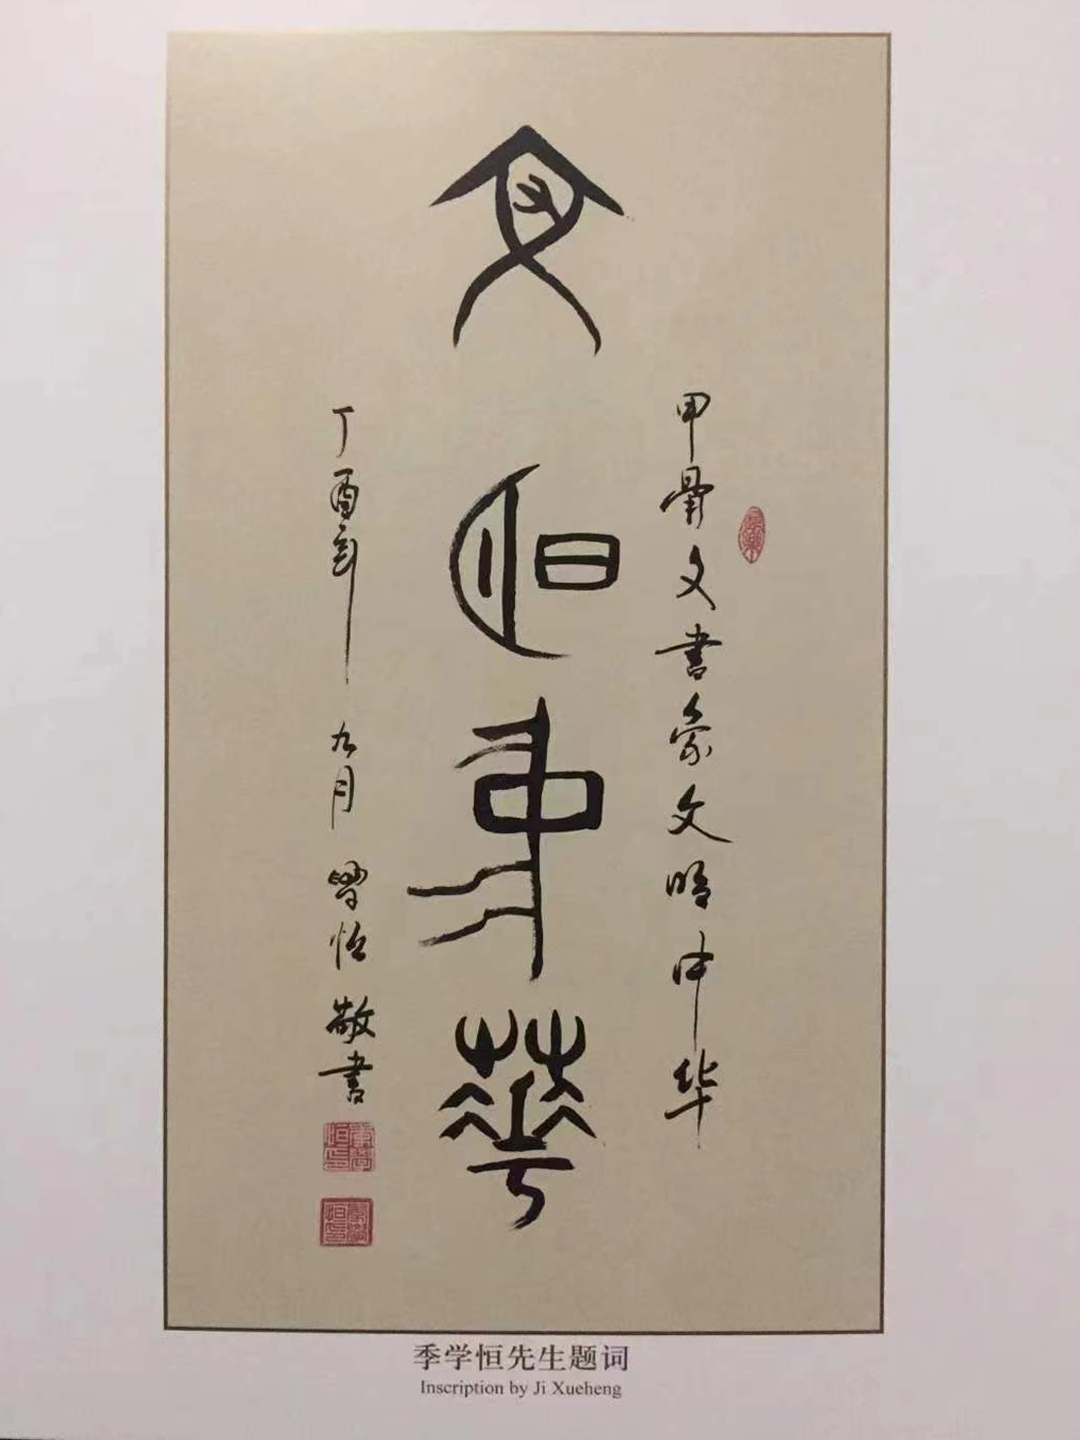 甲骨文書象文明中华
文明中華
丁酉年 九月 學恒 敬書
季学恒先生题词
Inscription by Ji Xueheng